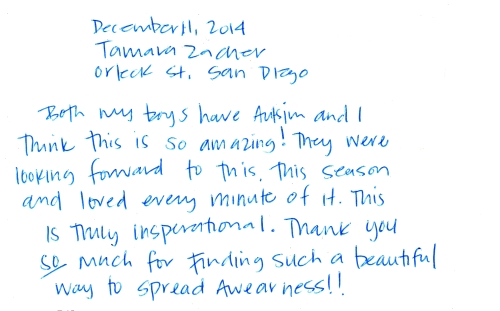 December 11, 2014
Tamara Zacher
Orleck St. San Diego
Both my boys have Autism and I
Think this is so amazing! They were
looking forward to this, this season
and loved every minute of it. This
is Truly inspirational. Thank you
so much for finding such a beautiful
way to spread Awearness!!